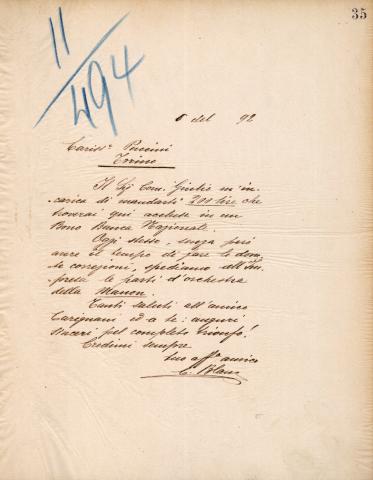 35
11/494
5 del 92
Cariss.º Puccini
Torino
Il Sig Com. Giulio m'in-
carica di mandarti 200 lire che
troverai qui accluse in un
Bono Banca Nazionale.
Oggi stesso, senza però
avere il tempo di fare le
te correzioni, spediamo all'Im-
presa le parti d'orchestra
della Manon.
Tanti saluti all'amico
Carignani ed a te: auguri
sinceri pel completo trionfo!
Credimi sempre
tuo aff.º amico
C. Blanc